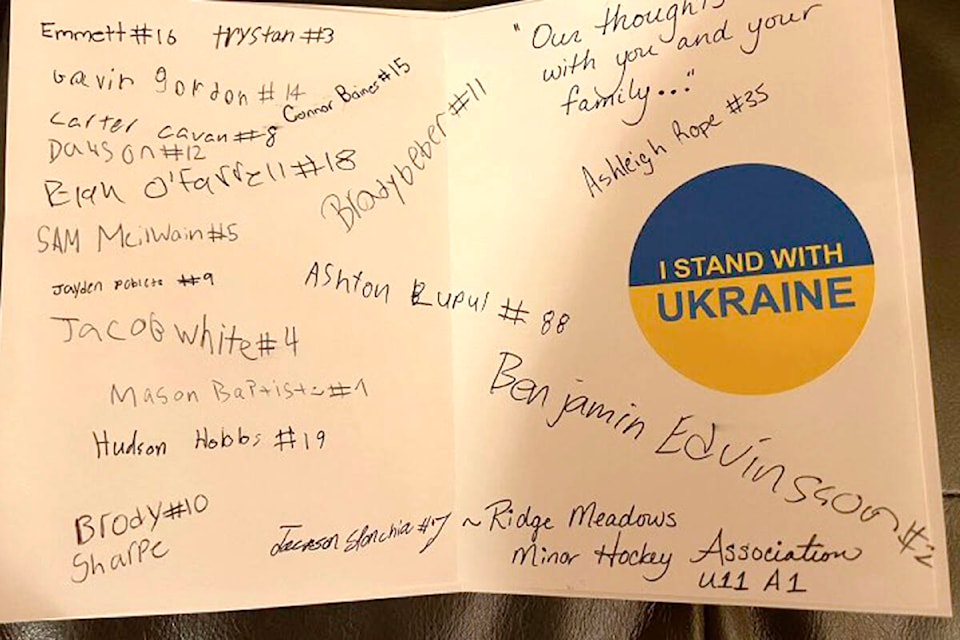 Emmett #16 trystan #3
Gavin gordon #14
Connor Baines #15
Carter Cavan #8
Dawson #12
O'Farrell #18
SAM McilWain #5
Jayden poblete #9
Jacob White #4
Mason Baptiste #1
Hudson Hobbs #19
Brody #10
Sharpe
Jackson #17
Brodybeber #11
Ashton Lupul #88
"Our thoughts
with you and your
family..."
Ashleigh Rope #35
I STAND WITH
UKRAINE
Benjamin Edvinsson
~Ridge Meadows
Minor Hockey Association
U11 A1